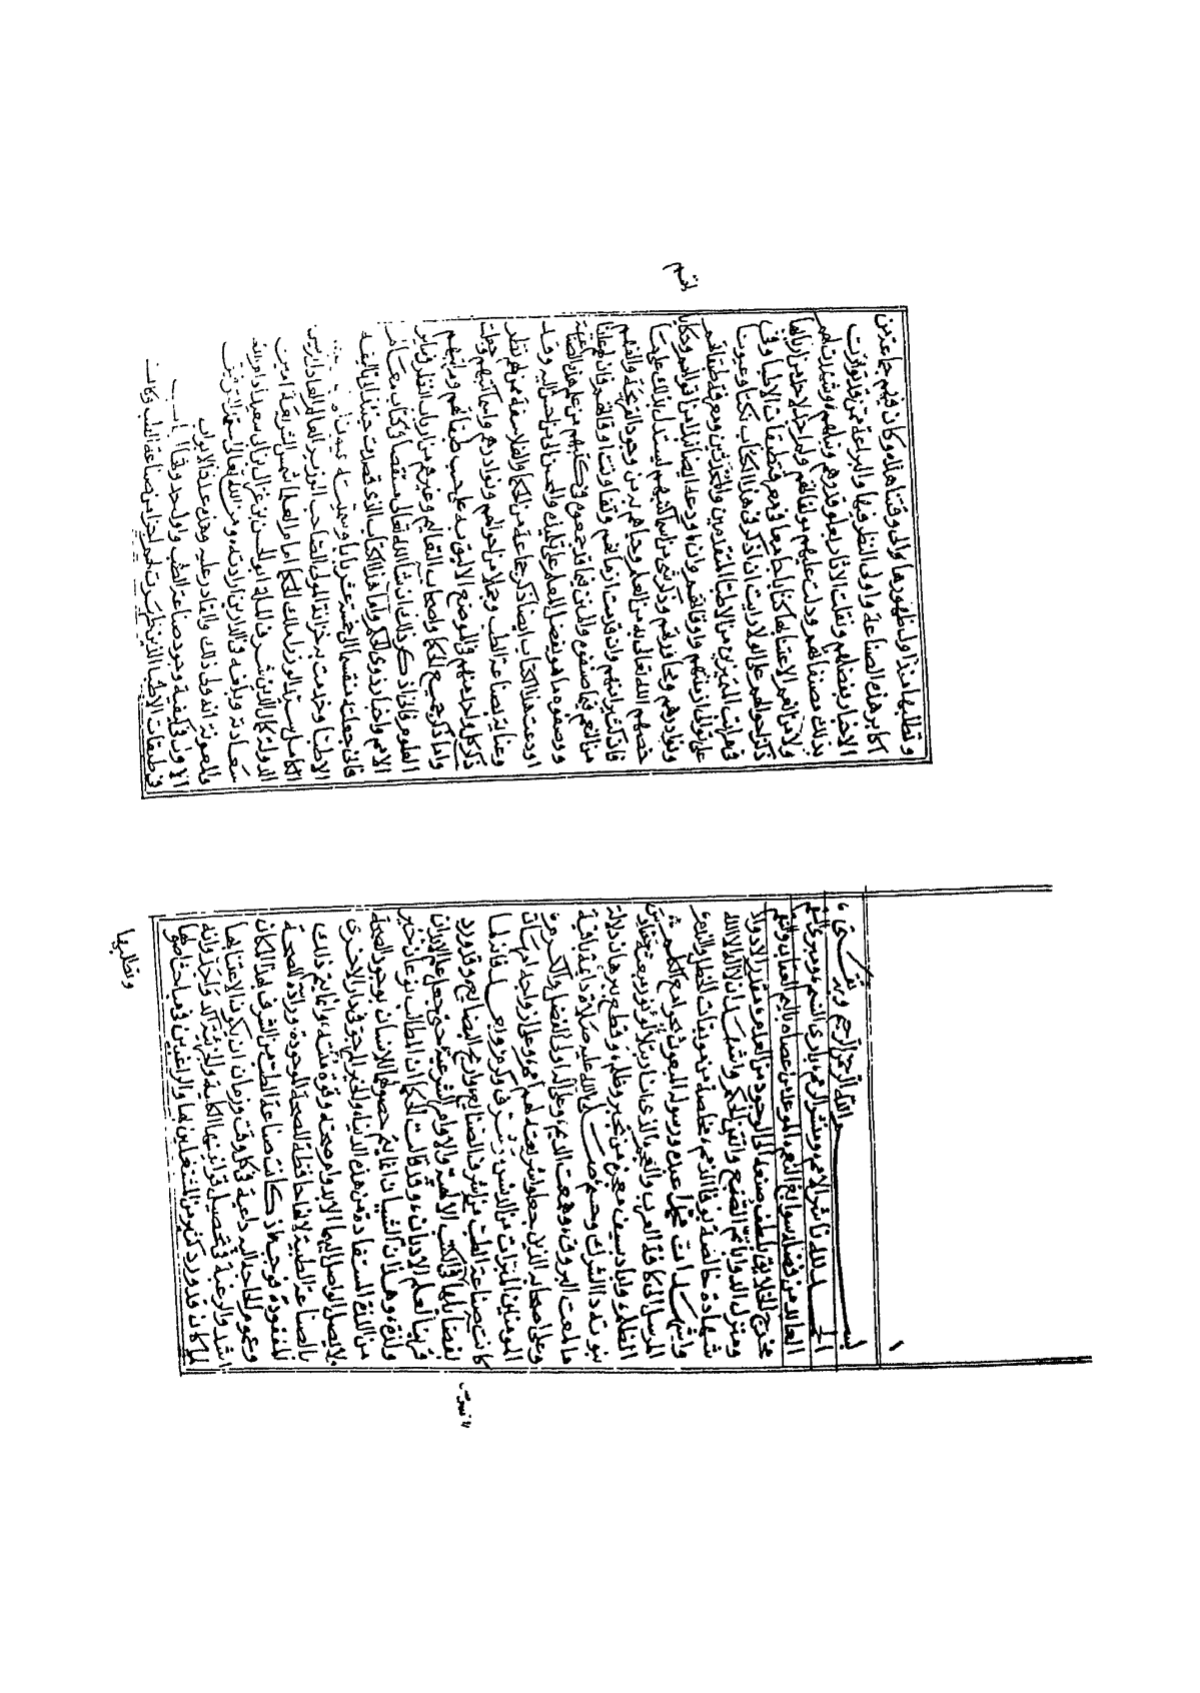 بســم الله الرحمن الرحيم وبه ثقتي
الحمـد لله ناشر الامم ومنشر الرمم وبارى النسم ومبرى السقم
العايد من فضله بسوابغ النعم الموعد من عصاه باليم العقاب والنقم
مخرج الخلايق بلطف صنعه الى الوجود من العدم ومقدر الادوآ
ومنزل الدوا باتم الصنع واتقن الحكم واشهـد ان لا اله الا الله
شهادة خالصة بوفا الذمم مخلصة من موبقات الخطل والندم
واشهـد ان محمدا عبده ورسوله المبعوث بجوامع الكلم
المرسل الى كافة العرب والعجم الذى انار بنور بعثته حنادس
الظلم واباد بسيف معجزه من تجبر وظلم وقطع ببرهان دلالة
نبوته دآ الشرك وحسم صلى الله عليه صلاة دايمة باقية
ما لمعت البروق وهمعت الديم وعلى آله اولى الفضل والكرم
وعلى اصحابه الذين جعلوا شريعته لهم امم وعلى ازواجه امهات
المومنين المبرات من الدنس وشرف وكرم وبعـــد فانه لما
كانت صناعة الطب من اشرف الصنايع واربح البضايع وقد ورد
تفضيلها فى الكتب الالهية والاوامر الشرعية حتى جعل علم الابدان
قرينا لعلم الاديان وقد قالت الحكما ان المطالب نوعان خير
ولذة وهذان الشيان انما يتم حصولهما للانسان بوجود الصحة
من اللذة المستفادة من هذه الدنيا والخير المرجو فى الدار الاخرى
لا يصل الواصل اليهما الا بدوام صحته وقوة بنيته وانما يتم ذلك
بالصناعة الطبية لانها حافظة للصحة الموجودة ورادة للصحة
المفقودة فوجب اذ كانت صناعة الطب من الشرف بهذا المكان
وعموم الحاجة اليها داعية فى كل وقت وزمان ان يكون الاعتنا بها
اشد والرغبة فى تحصيل قوانينها الكلية والجزئية آكد واجد وانه
لما كان قد ورد كثير من المشتغلين بها والراغبين فى مباحث اصولها
وتطلبها
وتطلبها منذ اول ظهورها والى وقتنا هذا وكان فيهم جماعة من
اكابر هذه الصناعة واولى النظر فيها والبراعة ممن قد تواترت
الاخبار بفضلهم ونقلت الاثار بعلو قدرهم ونبلهم وشهدت لهم
بذلك مصنفاتهم ودلت عليهم مولفاتهم ولم اجد لاحد من اربابها
ولا من انعم الاعتنا بها كتابا جامعا فى معرفة طبقات الاطبا وفى
ذكر احوالهم على الولا رايت ان اذكر فى هذا الكتاب نكتا وعيونا
فى مراتب المميزين من الاطبا المتقدمين والمحدثين ومعرفة طبقاتهم
على توالى ازمنتهم واوقاتهم وان اودعه ايضا نبذا من اقوالهم وحكاياتهم
ونوادرهم ومحاوراتهم وذكر شى من اسما كتبهم ليستدل بذلك على ما
خصهم الله تعالى به من العلم وحباهم به من وجود القريحة والفهم
فان كثيرا منهم وان قدمت ازمانهم وتفاوتت اوقاتهم فان لهم علينا
من النعم فيما صنفوه والمنن فيما قد جمعوه فى كتبهم من علم هذه الصناعة
ووضعوه ما هو تفضل المعلم على تلميذه والمحسن الى من احسن اليه وقد
اودعت هذا الكتاب ايضا ذكر جماعة من الحكما والفلاسفة ممن لهم نظر
وعناية بصناعة الطب وجملا من احوالهم ونوادرهم واسما كتبهم وجعلت
ذكر كل واحد منهم فى الموضع الاليق به على حسب طبقاتهم ومراتبهم
واما ذكر جميع الحكما واصحاب التعاليم وغيرهم من ارباب النظر فى ساير
العلوم فانى اذكر ذلك ان شا الله تعالى مستقصا فى كتاب معالم
الامم واخبار ذوى الحكم واما هذا الكتاب الذى قصدت حينئذ الى تاليفه
فانى جعلته منقسما الى خمسة عشر بابا وسميته
الاطبا وخدمت به خزانة المولى الصاحب الوزير العالم العادل الرييس
الكامل سيد الوزرا ملك الحكما امام العلما شمس الشريعة امين
الدولة كمال الدين شرف الملة ابو الحسن بن غزال بن ابى سعيد ادام الله
سعادته وبلغه فى الدارين ارادته ومن الله تعالى استمد التوفيق
والمعونة انه ولى ذلك والقادر عليه وهذه عدة الابواب
الاول فى كيفية وجود صناعة الطب واول حدوثها
فى طبقات الاطبا الذين ظهرت لهم اجزا من صناعة الطب وكانت